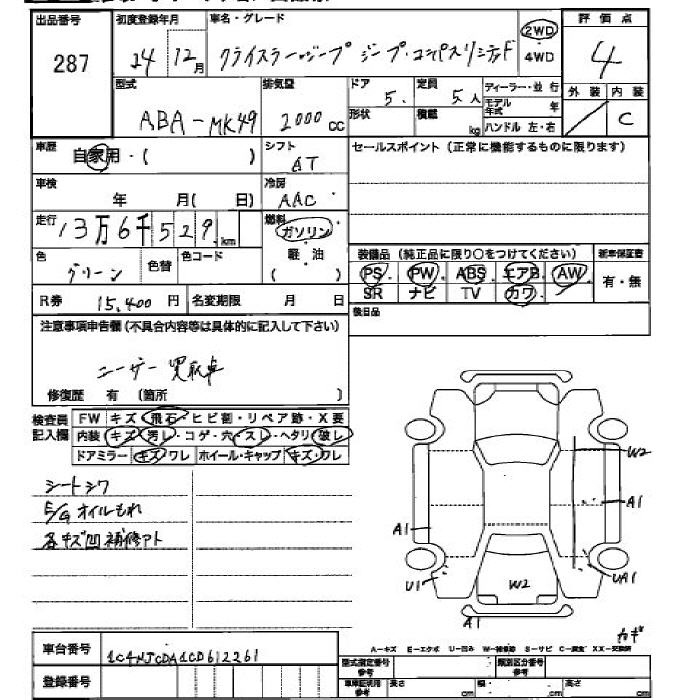 出品番号 初度登録年月 車名・グレード 2WD 評価点
287 24 12月 クライスラー・ジープ ジープ・コンパスリミテッド 4WD 4
型式 排気量 ドア 定員 ディーラー・並行 外装 内装
ABA-MK49 2000cc 5. 5人 モデル年式 年 C
形状 積載 kg ハンドル 左・右
車歴 自家用・( ) シフト AT セールスポイント(正常に機能するものに限ります)
車検 年 月(日) 冷房 AAC
走行 13万6千529.km 燃料 ガソリン・
色 グリーン 色替 色コード 軽・油 ( ) 装備品(純正品に限り○をつけてください) 新車保証書
PS・PW・ABS・エアB・AW・ 有・無
R券 15,400円 名変期限 月 日 SR ナビ TV カワ・
後日品
注意事項申告欄(不具合内容等は具体的に記入して下さい)
ユーザー買取車
修復歴 有 (箇所 )
検査員 FW キズ・飛石・ヒビ割・リペア跡・X要
記入欄 内装 キズ・汚レ・コゲ・穴・スレ・ヘタリ・破レ
ドアミラー キズ・ワレ ホイール・キャップ キズ・ワレ
シートシワ
E/Gオイルもれ
各キズ凹補修アト
W2
A1
A1
U1 W2 UA1
A1
カギ
A-キズ E-エクボ U-凹み W-補修跡 S-サビ C-腐食 XX-交換済
車台番号 1C4NJCDA1CD612261
型式指定番号 参考 類別区分番号 参考
登録番号 車車証明用 参考 長さ cm 幅・ cm 高さ cm